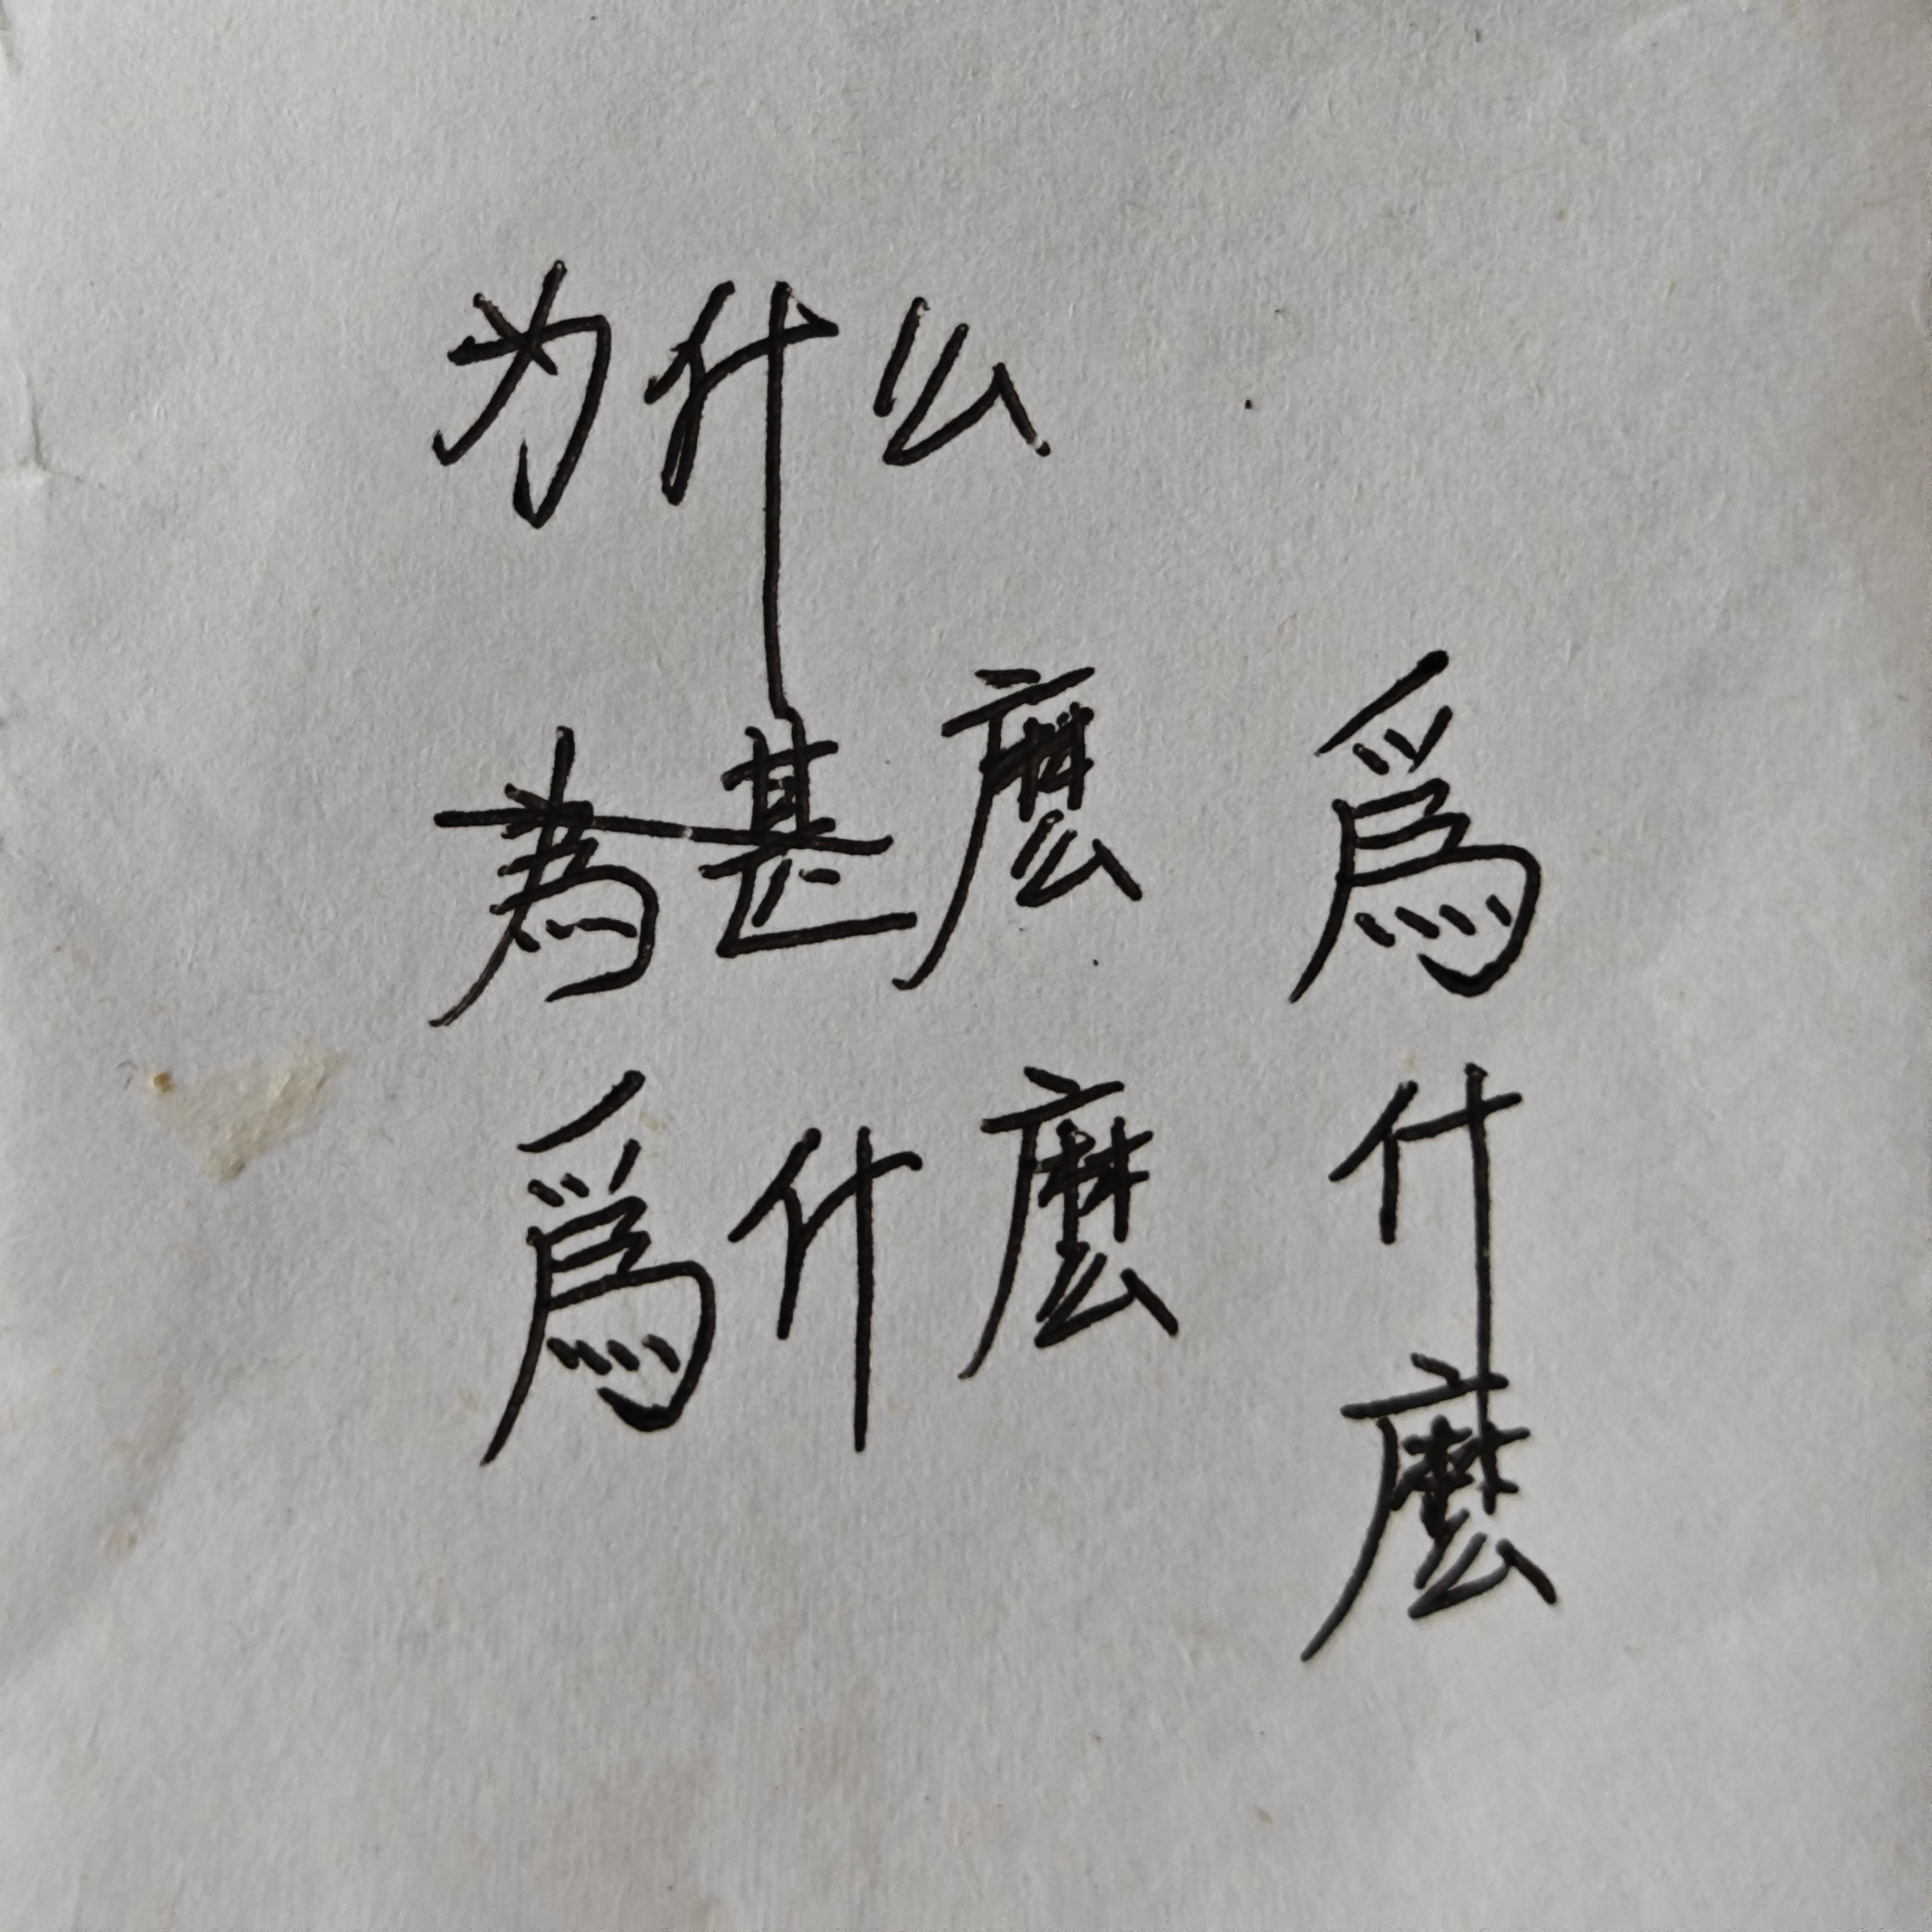 为什么
為甚麼
爲什麼
爲什麼